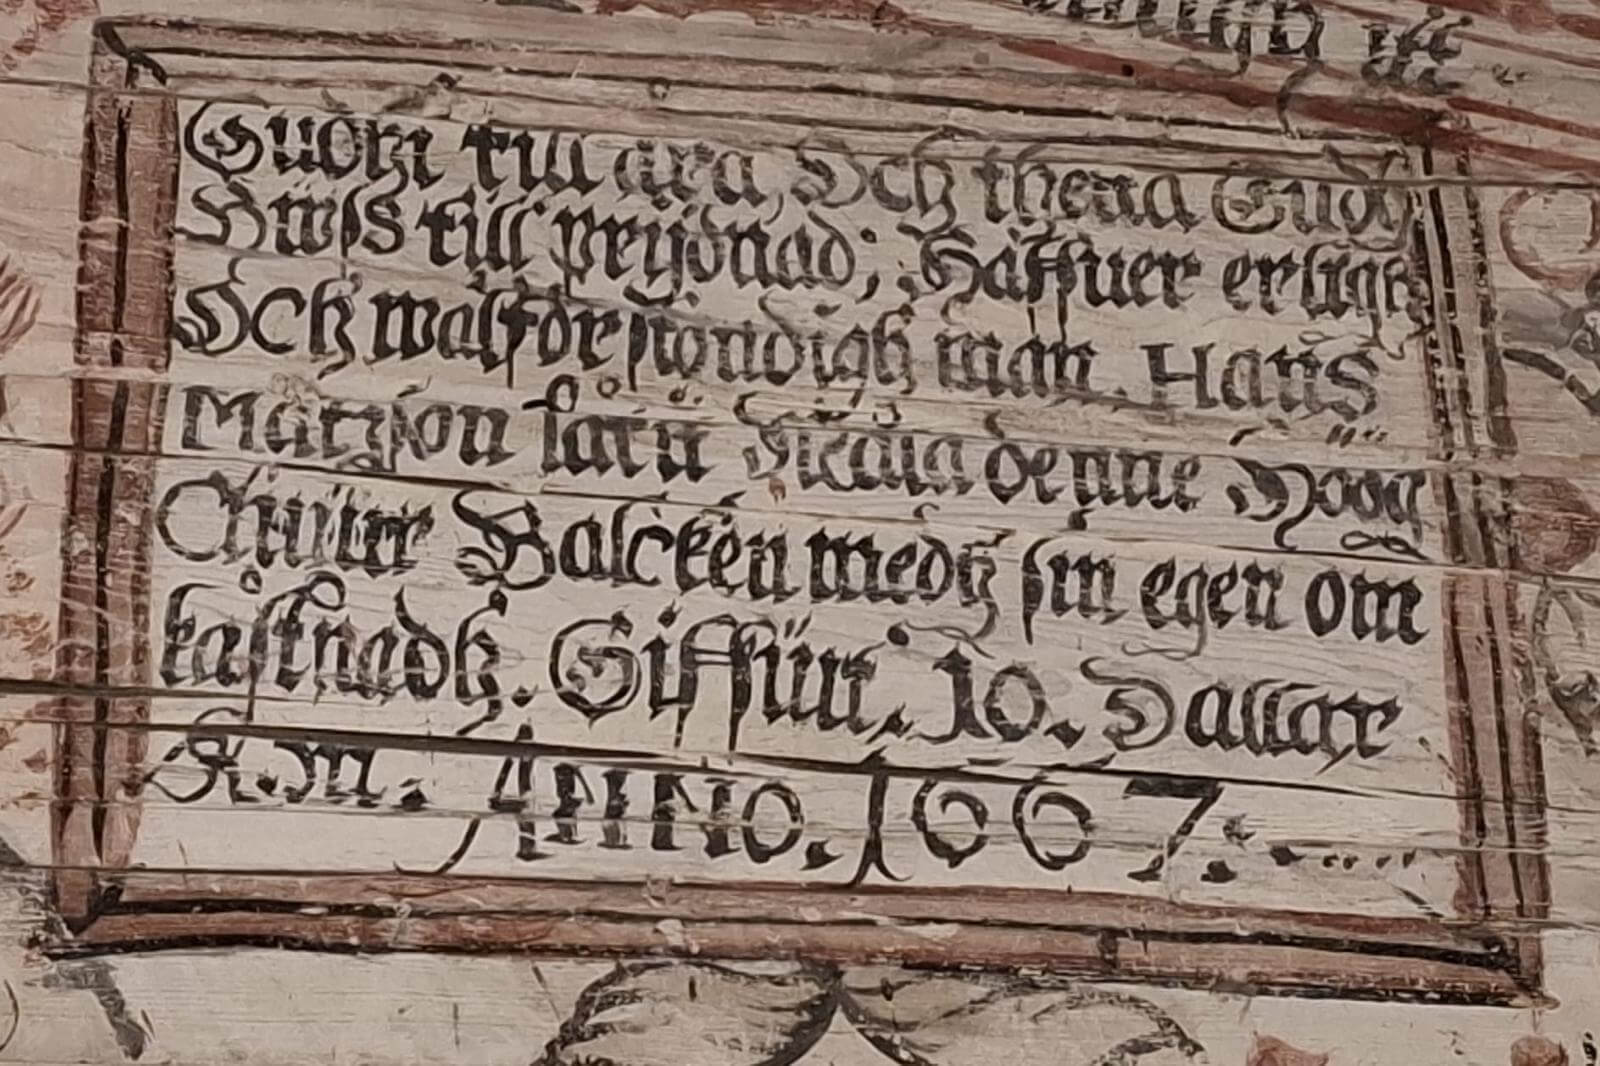 Gudhi till ära, Och thena Gudh
Hwss till prijdnad; Häffuer erligh
Och wälfördståndigh man. Hans
Mårtzson låtit Måla denne Höga
Chour Balcken medh sin egen om
kåstnadh. Giffuit. 10. Dallar
K.M. ANNO. 1667.